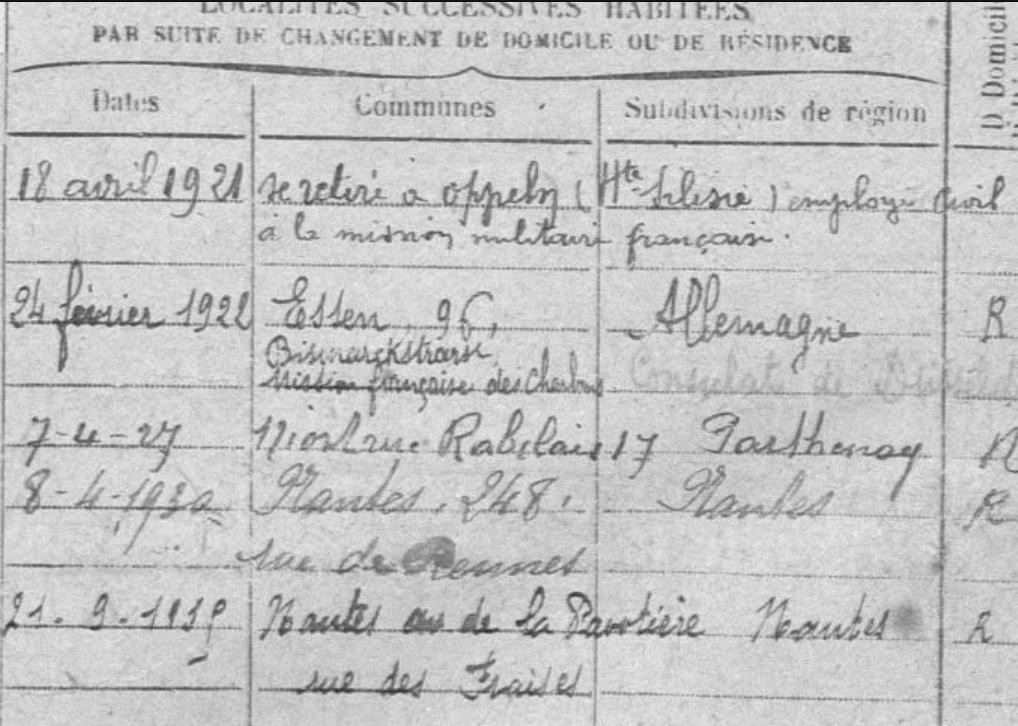 LOCALITÉS SUCCESSIVES HABITÉES
PAR SUITE DE CHANGEMENT DE DOMICILE OU DE RÉSIDENCE
Dates Communes Subdivisions de région D Domicil
18 avril 1921 se retire a oppeln (Hte Silesie) employé civil
à la mission militaire française.
24 février 1922 Essen, 96, Allemagne R
Bismarckstrasse
Mission française des charbons Consulat de
7-4-27 Niort rue Rabelais 17 Parthenay R
8-4-1930 Nantes, 248, Nantes R
rue de Rennes
21. 9. 193 Nantes de la Nantes R
rue des Fraises